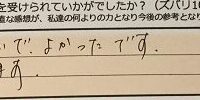 を受けられていかがでしたか？（ズバリ10
直な感想が、私達の何よりの力となり今後の参考となり
いで、よかったです。
ます。